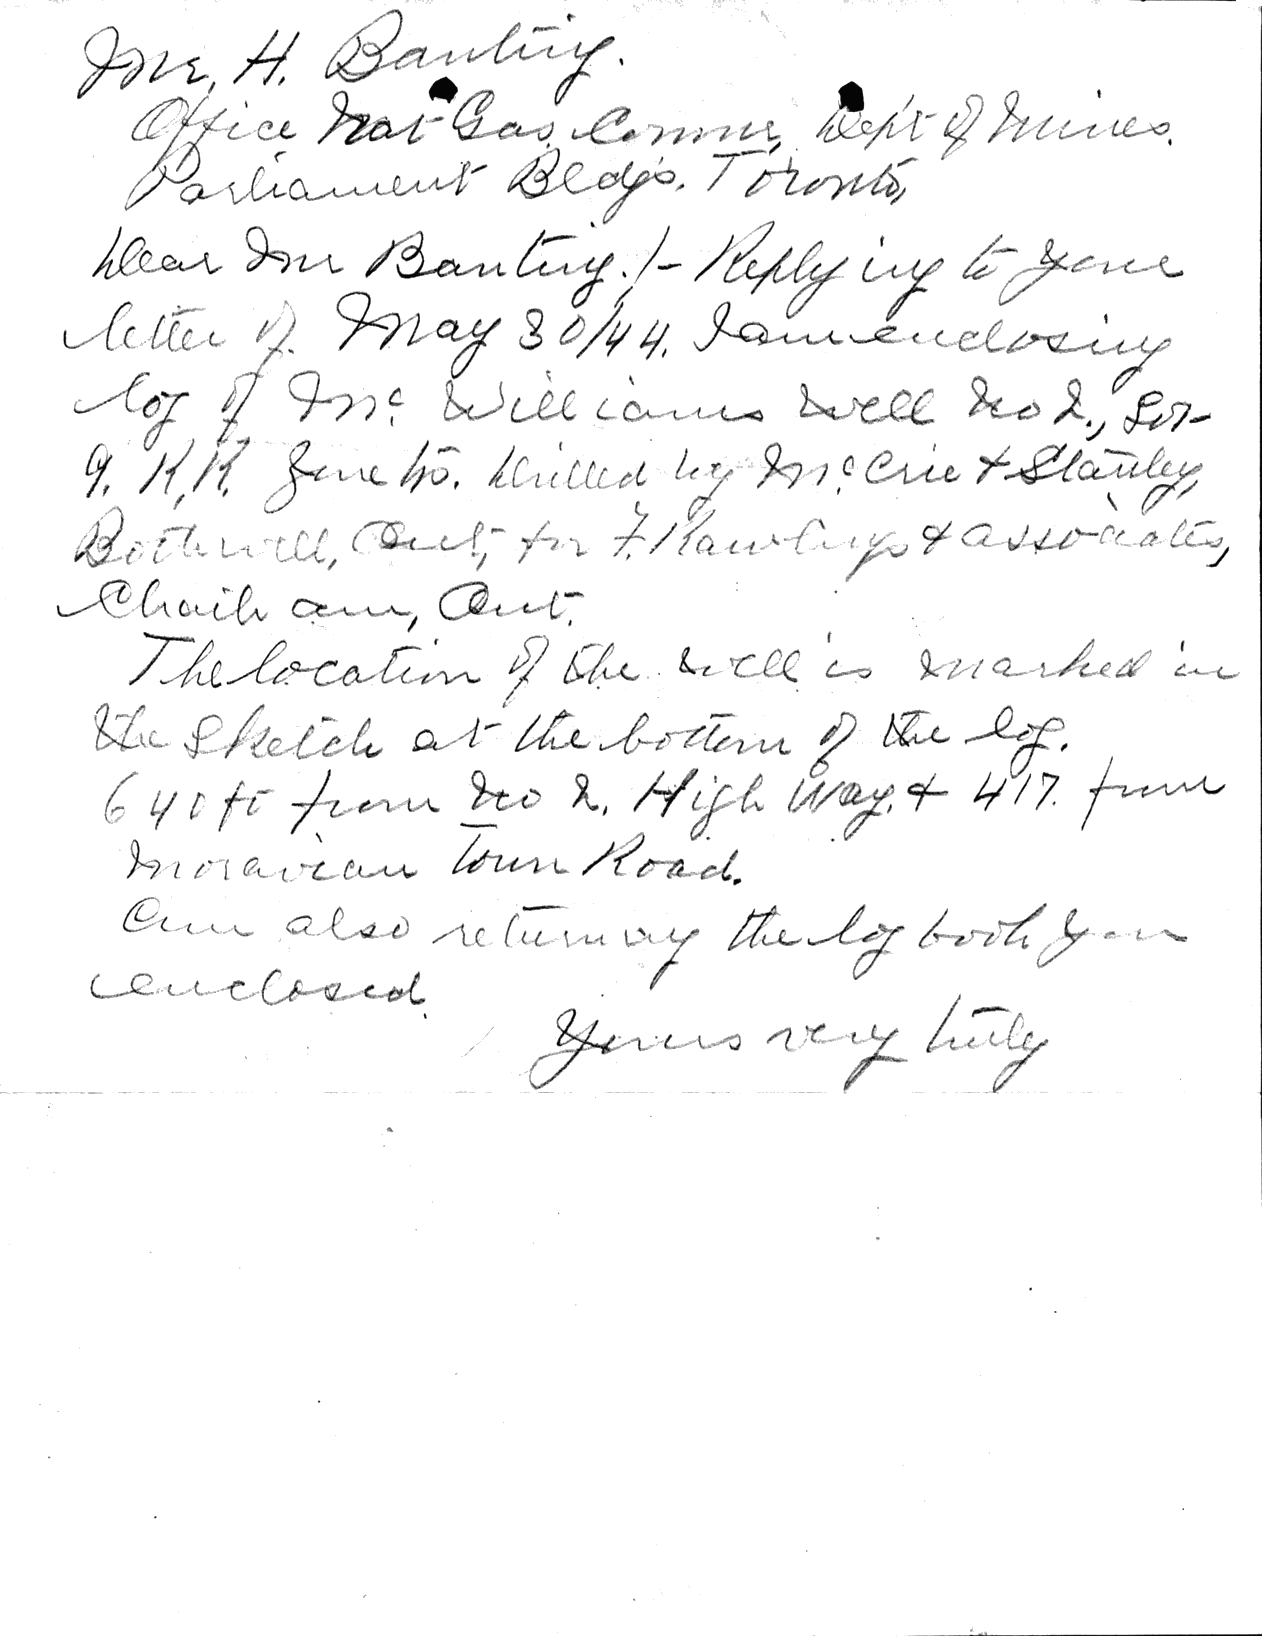 Mr. H. Banting.
Office Nat Gas. Commr, Dep't of Mines.
Parliament Bldgs. Toronto,
Dear Mr Banting:/- Replying to your
letter of May 30/44. I am enclosing
log of Mc Williams well No 2., Lot
9. R,R. Zone Drilled by Mc Crie & Stanley,
Bothwell, Ont, for F. Rawlings & associates,
Chatham, Ont.
The location of the well is marked in
the Sketch at the bottom of the log.
640 ft from No 2. High Way. & 417. from
Moravian Town Road.
Am also returning the log book you
enclosed.
Yours very truly